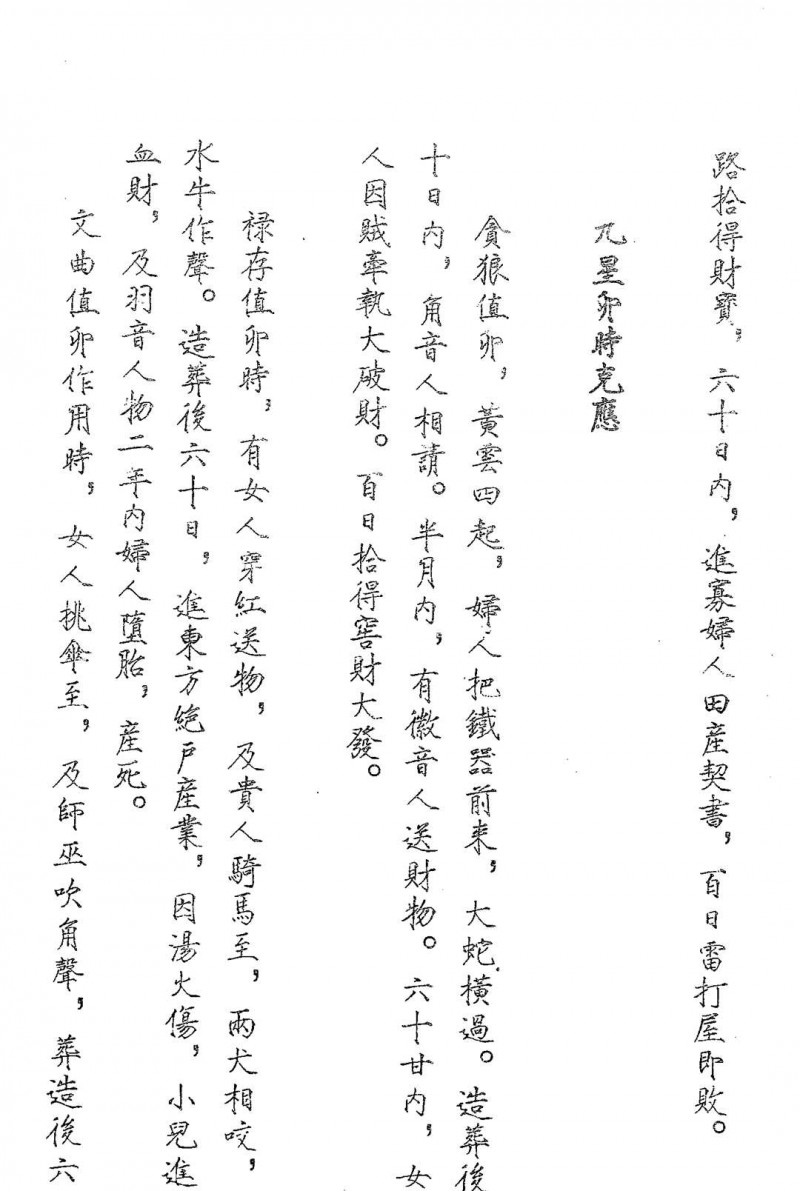 路拾得財寶，六十日內，進寡婦人田產契書，百日雷打屋即敗。
九星卯時克應
貪狼值卯，黃雲四起，婦人把鐵器前来，大蛇橫過。造葬後
十日內，角音人相請。半月內，有徵音人送財物。六十甘內，女
人因賊牽執大破財。百日拾得窖財大發。
禄存值卯時，有女人穿紅送物，及貴人騎馬至，兩犬相咬，
水牛作聲。造葬後六十日，進東方絶戶產業，因湯火傷，小兒進
血財，及羽音人物二年內婦人墮胎，産死。
文曲值卯作用時，女人挑傘至，及師巫吹角聲，葬造後六